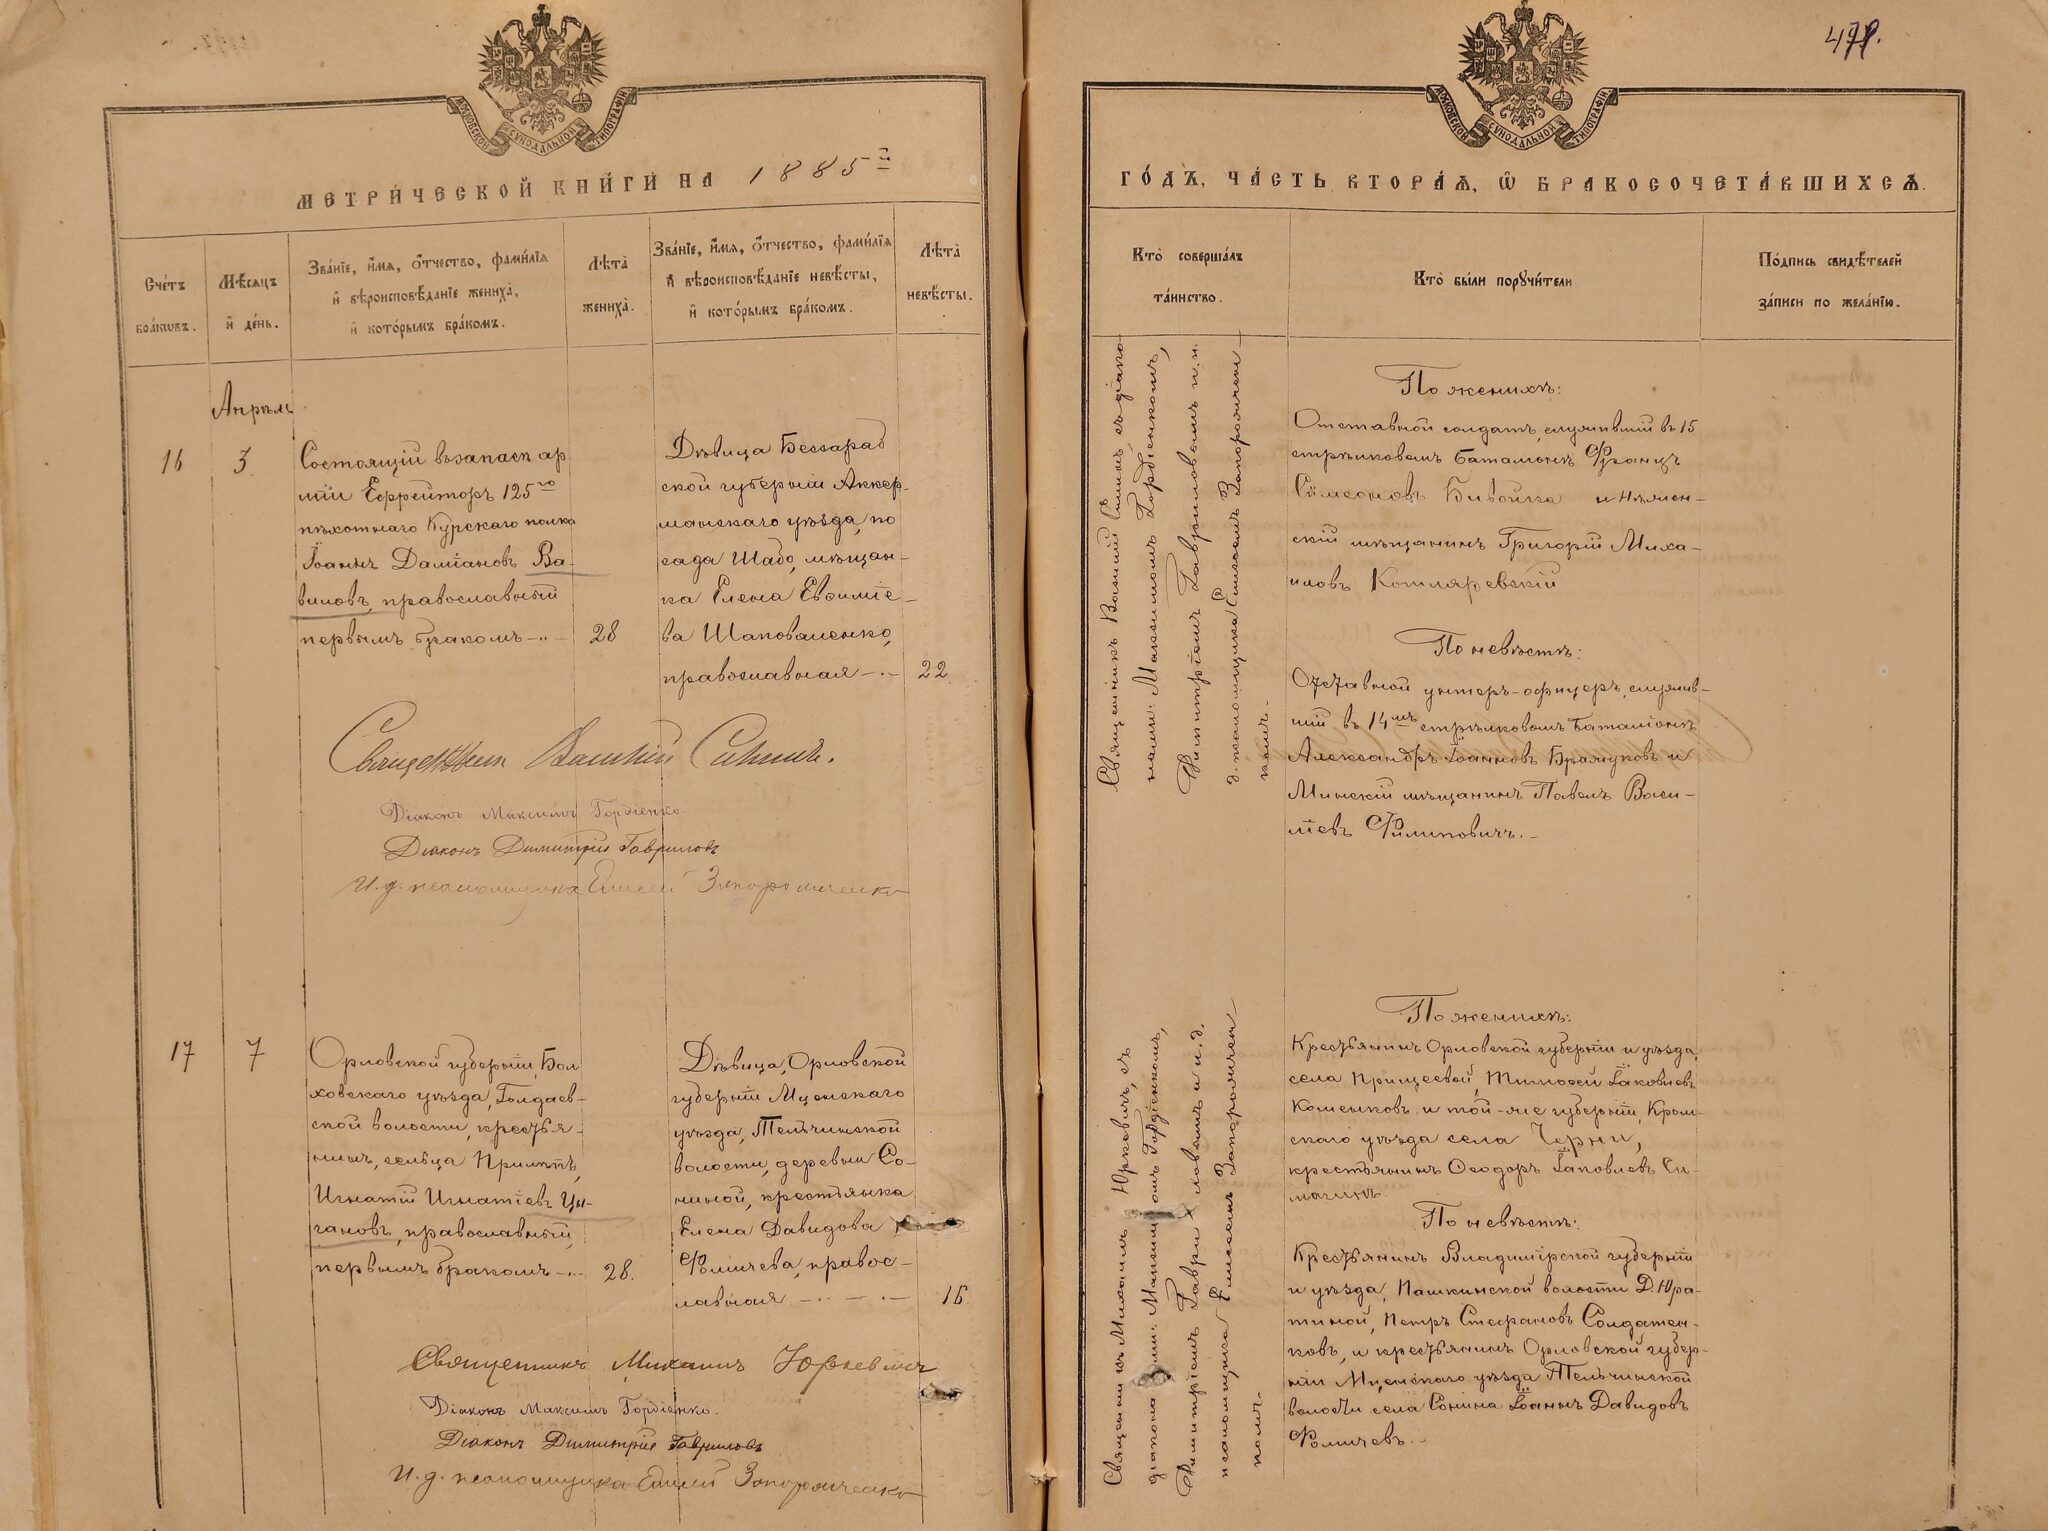 МОСКОВСКОЙ СѴНОДАЛЬНОЙ ТИПОГРАФІИ
МЕТРИ́ЧЕСКОЙ КНИ́ГИ НА 1885й
Сче́тъ
бра́ковъ.
Мѣ́сяцъ
и҆ де́нь.
Зва́нїе, и҆́мя, о҆́тчество, фами́лїя
и҆ вѣроисповѣ́данїе жениха̀,
и҆ кото́рымъ бра́комъ.
Лѣ́та
жениха̀.
Зва́нїе, и҆́мя, о҆́тчество, фами́лїя
и҆ вѣроисповѣ́данїе невѣ́сты,
и҆ кото́рымъ бра́комъ.
Лѣ́та
невѣ́сты.
Апрѣль
16
3.
Состоящій въ запасѣ ар
міи Ефрейторъ 125го
пѣхотнаго Курскаго полка
Іоаннъ Даміановъ Ва-
виловъ, православный
первымъ бракомъ -..-
28
Дѣвица Бессараб
ской губерніи Аккер-
манскаго уѣзда, по
сада Шабо, мѣщан-
ка Елена Евѳиміе-
ва Шаповаленко,
православная -.-
22
Священникъ Василій
Діаконъ Максимъ Гордіенко.
Діаконъ Димитрій Гавриловъ
И. д. псаломщика Елисей Запорожченко
17
7
Орловской губерніи, Бол
ховскаго уѣзда, Голдаев-
ской волости, крестья-
нинъ, сельца
Игнатій Игнатіевъ Цы-
гановъ, православный,
первымъ бракомъ -..-
28.
Дѣвица, Орловской
губерніи Мценскаго
уѣзда, Тельчинской
волости, деревни Со-
ниной, крестьянка
Елена Давидова
Фомичева, правос-
лавная -..-.-
16
Священникъ Михаилъ Юркевичъ
Діаконъ Максимъ Гордіенко.
Діаконъ Димитрій Гавриловъ
И. д. псаломщика Елисей Запорожченко
МОСКОВСКОЙ СѴНОДАЛЬНОЙ ТИПОГРАФІИ
ГО́ДЪ, ЧА́СТЬ ВТОРА́Я, Ѡ҆ БРАКОСОЧЕТА́ВШИХСЯ.
Кто̀ соверша́лъ
та́инство.
Кто̀ бы́ли порꙋчи́тели
По́дпись свидѣ́телей
за́писи по жела́нїю.
Священникъ Василій съ діако-
нами: Максимомъ Гордіенкомъ,
Димитріемъ Гавриловымъ и и.
д. псаломщика Елисеемъ Запорожчен-
комъ.-
По женихѣ:
Отставной солдатъ, служившій въ 15
стрѣлковомъ баталіонѣ Францъ
Симеоновъ Бивойка и Нѣжен-
скій мѣщанинъ Григорій Миха-
иловъ Котляревскій
По невѣстѣ:
Отставной унтеръ-офицеръ, служив-
шій въ 14мъ стрѣлковомъ баталіонѣ
Александръ Іоанновъ и
Минскій мѣщанинъ Павелъ Васи-
ліевъ Филиповичъ.-
Священникъ Михаилъ Юркевичъ, съ
діаконами: Максимомъ Гордіенкомъ,
Димитріемъ Гавриловымъ и и.д.
псаломщика Елисеемъ Запорожчен-
комъ.-
По женихѣ:
Крестьянинъ Орловской губерніи и уѣзда,
села Тимоѳей Іаковлевъ
и той-же губерніи, Кром-
скаго уѣзда села Черни,
крестьянинъ Ѳеодоръ Іаковлевъ Си-
магинъ
По невѣстѣ:
Крестьянинъ Владимірской губерніи
и уѣзда, волости Д. Юра-
тиной, Петръ Стефановъ Солдатен-
ковъ, и крестьянинъ Орловской губер-
ніи Мценскаго уѣзда Тельчинской
волости села Сонина Іоаннъ Давидовъ
Фомичевъ.-